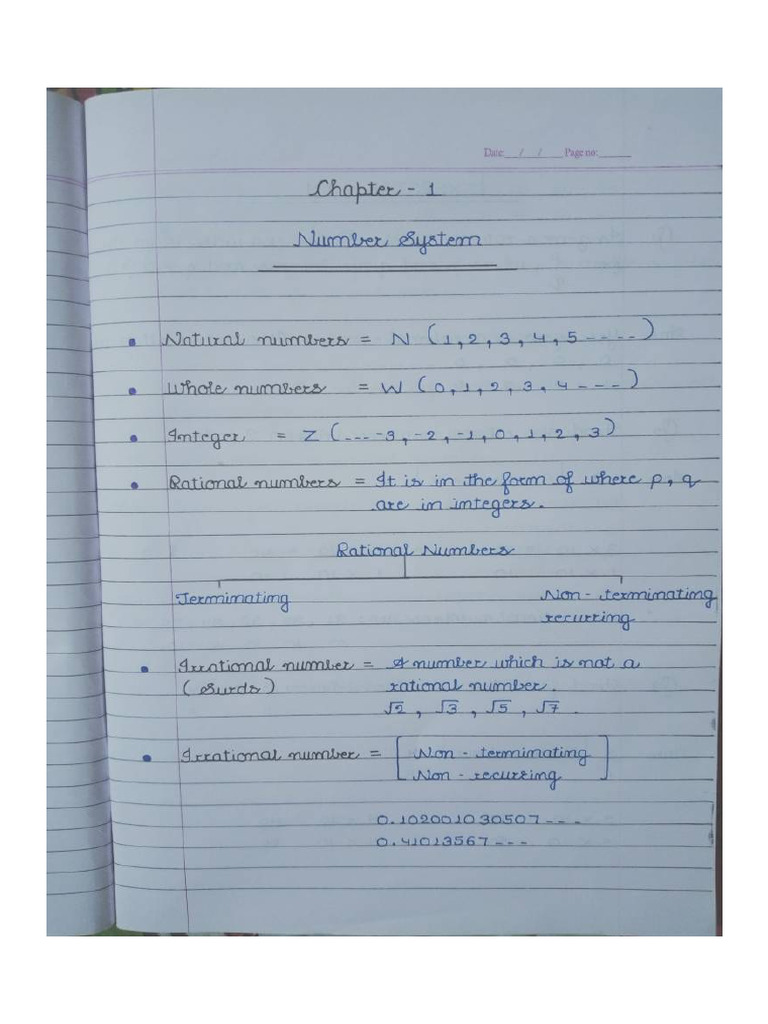 Date: / / Page no:
Chapter - 1
Number System
• Natural numbers = N (1, 2, 3, 4, 5 ----)
• Whole numbers = W (0, 1, 2, 3, 4 ---)
• Integer = Z (... -3, -2, -1, 0, 1, 2, 3)
• Rational numbers = It is in the form of where p, q
are in integers.
Rational Numbers
Terminating Non - terminating
recurring
• Irrational number = A number which is not a
(Surds) rational number.
√2, √3, √5, √7.
• Irrational number = [Non - terminating
Non - recurring]
0.102001030507---
0.41013567---